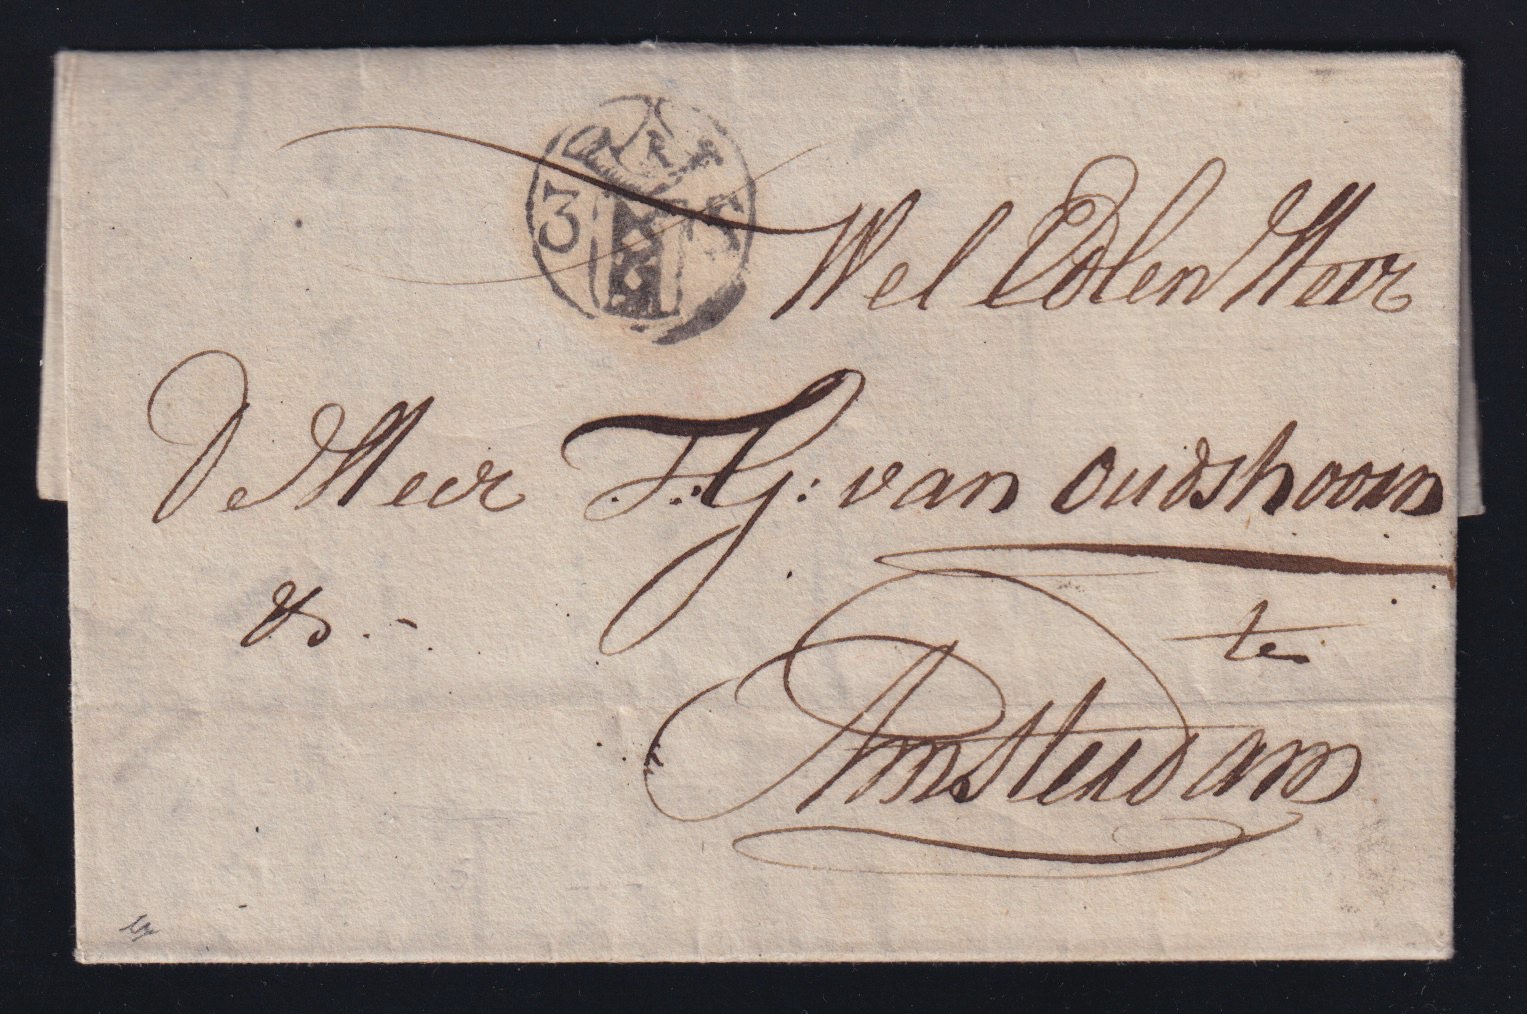 3 S
Wel Edlen Heer
De Heer F: G: van oudshoorn
&s. -
te
Amsterdam